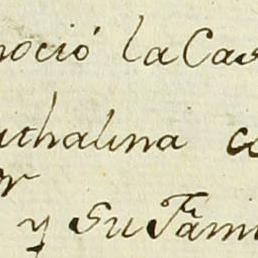 noció la Cas
athalina co
y su Fami